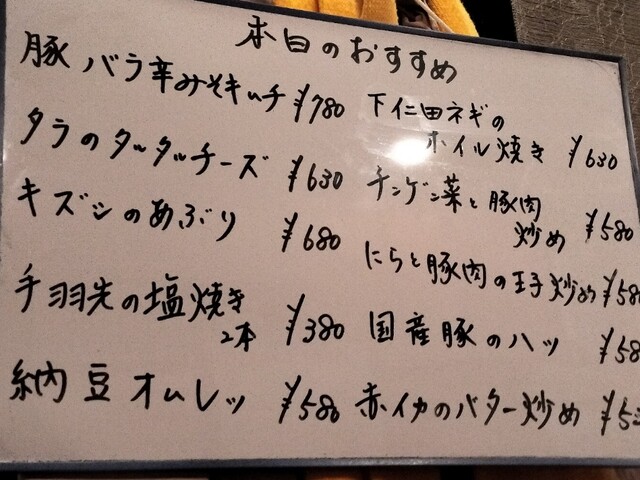 本日のおすすめ
豚バラ辛みそキムチ ¥780
タラのタッタッチーズ ¥630
キズシのあぶり ¥680
手羽先の塩焼き
2本 ¥380
納豆オムレッ ¥580
下仁田ネギの
ホイル焼き ¥630
チンゲン菜と豚肉
炒め ¥580
にらと豚肉の玉子炒め ¥580
国産豚のハツ ¥58
赤イカのバター炒め